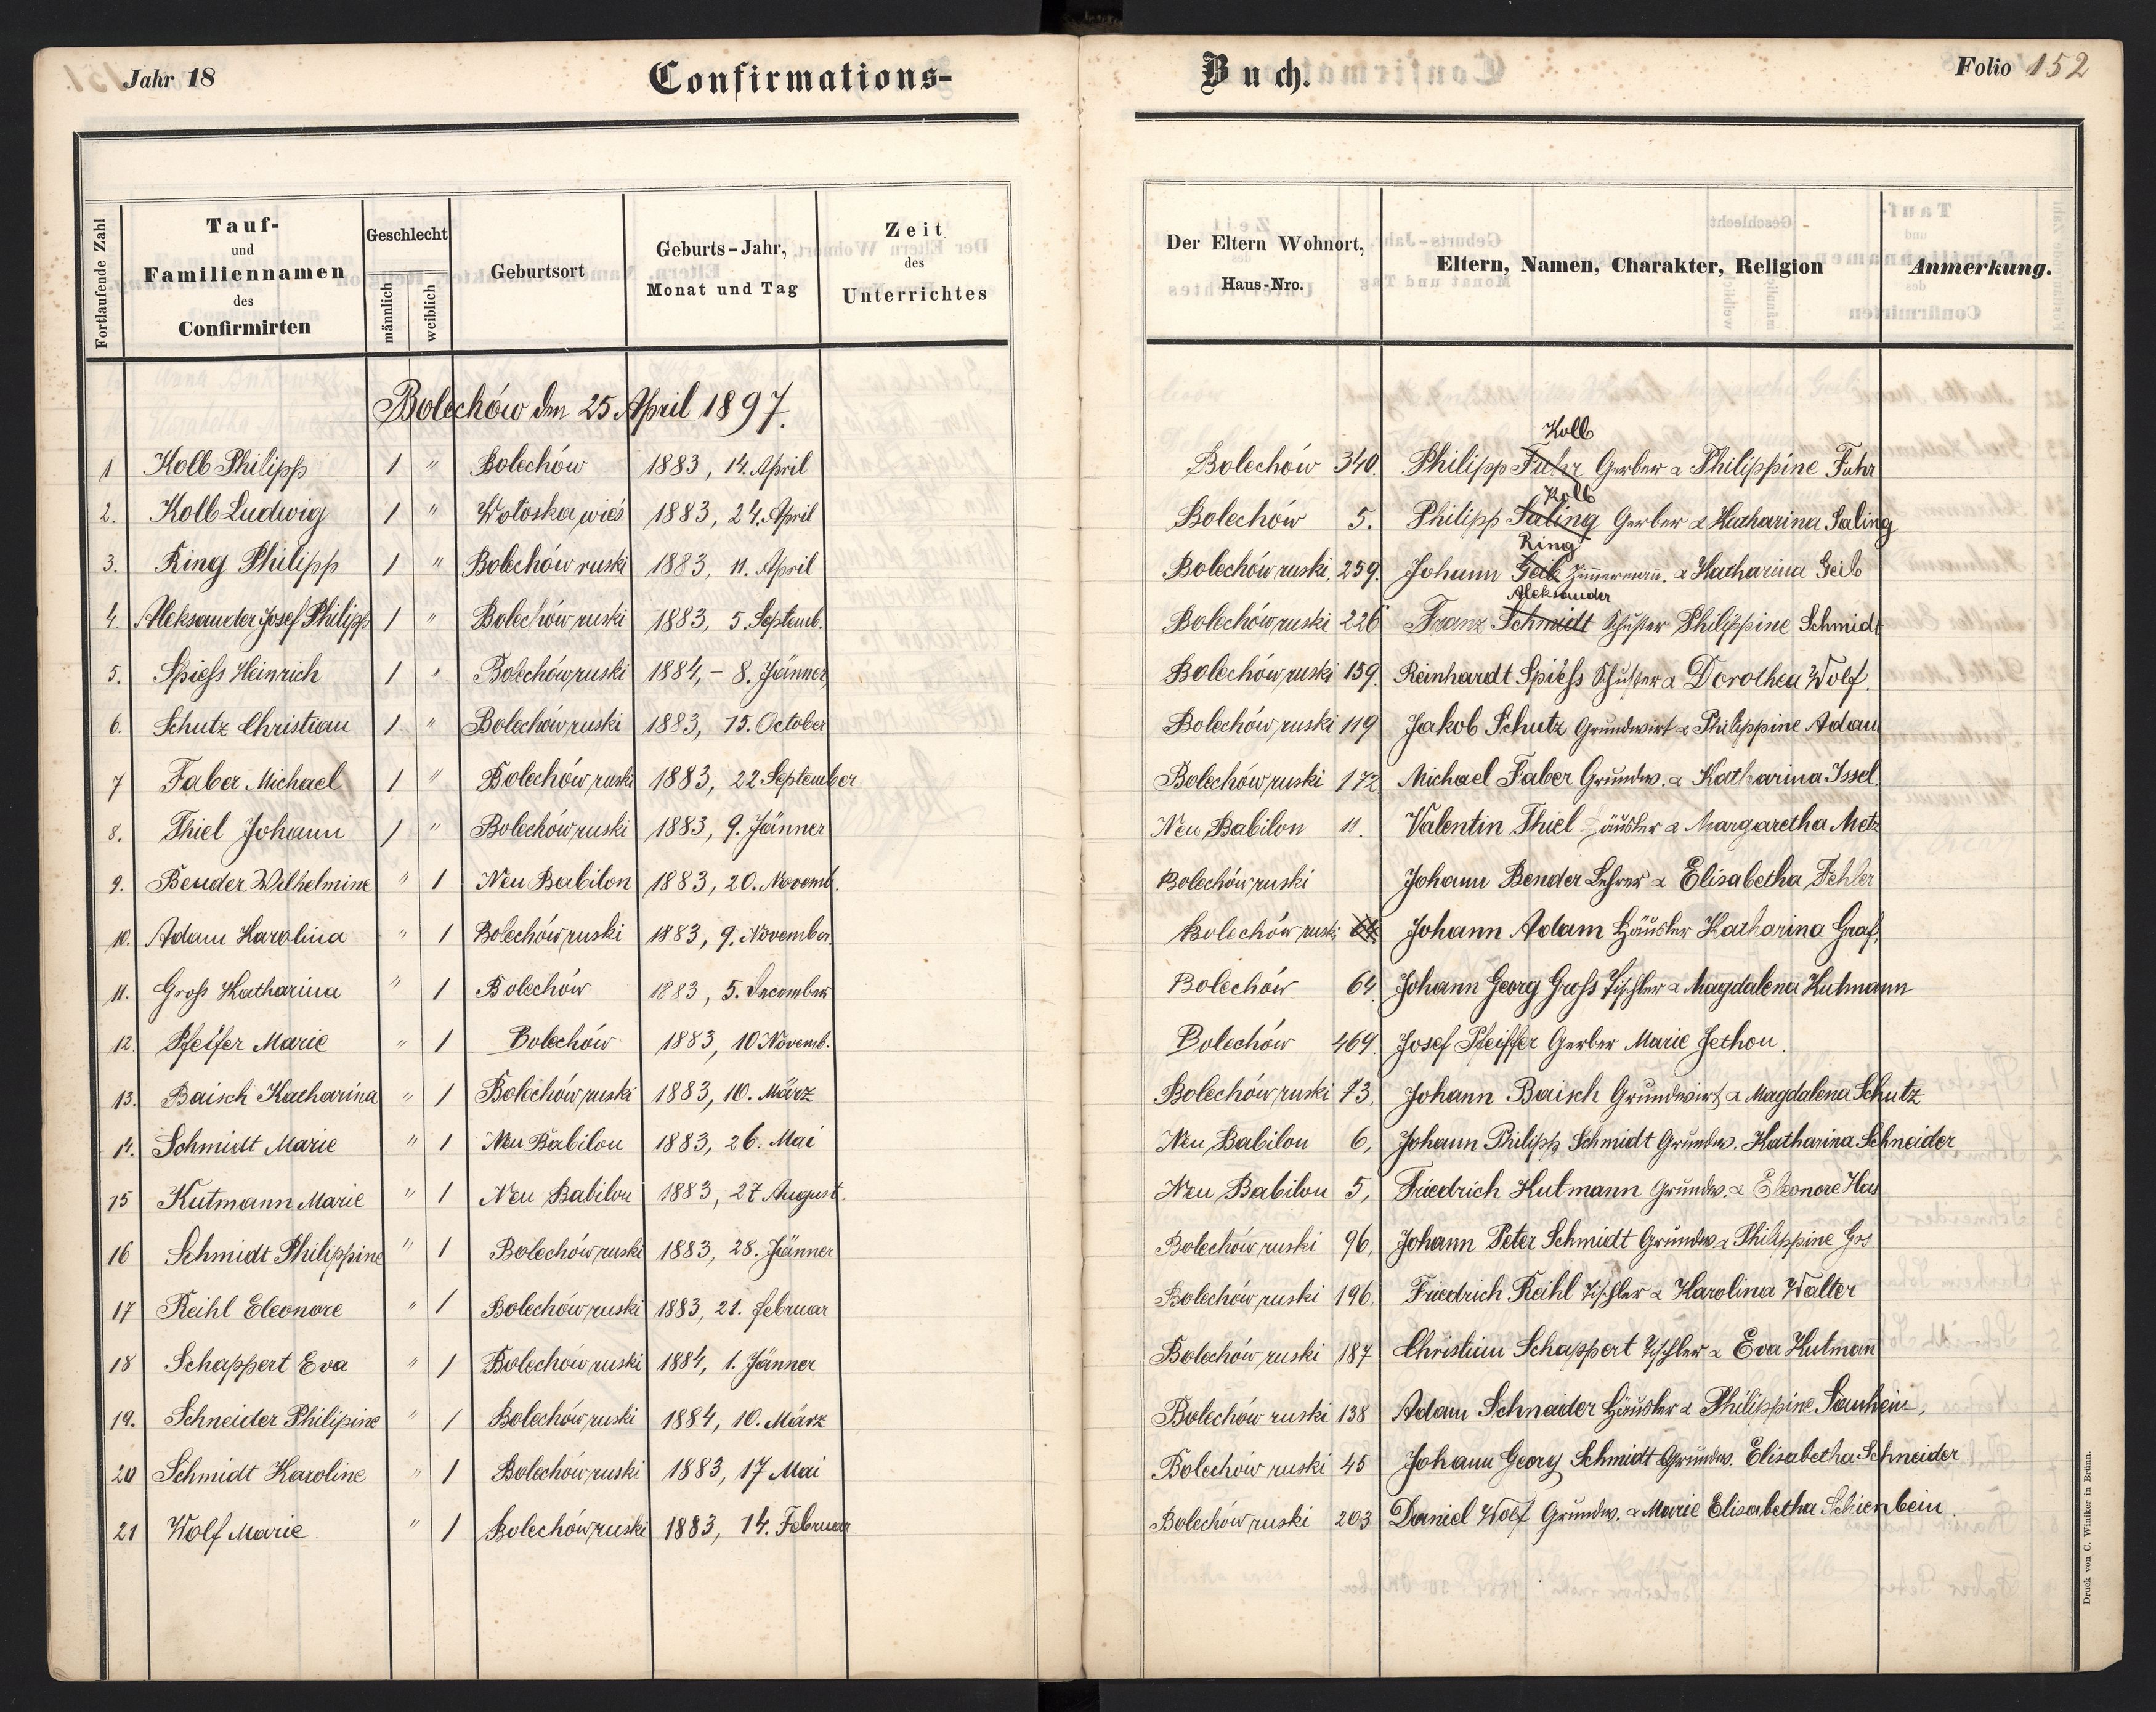 Jahr 18
Confirmations-
Buch.
Folio 152
Fortlaufende Zahl
Tauf-
und
Familiennamen
des
Confirmirten
Geschlecht
männlich
weiblich
Geburtsort
Geburts-Jahr,
Monat und Tag
Zeit
des
Unterrichtes
Der Eltern Wohnort,
Haus-Nro.
Eltern, Namen, Charakter, Religion
Anmerkung.
Bolechów den 25 April 1897.
Kolb
1 Kolb Philipp 1 " Bolechów 1883, 14. April Bolechów 340. Philipp Fuhr Gerber & Philippine Fuhr
Kolb
2. Kolb Ludwig 1 " Wołoska wieś 1883, 24. April Bolechów 5. Philipp Saling Gerber & Katharina Saling
Ring
3. Ring Philipp 1 " Bolechów ruski 1883, 11. April Bolechów ruski, 259. Johann Geib Zimmermann. & Katharina Geib
Aleksander
4. Aleksander Josef Philipp 1 " Bolechów ruski 1883, 5. Septemb. Bolechów ruski 226 Franz Schmidt Schuster Philippine Schmidt
5. Spiess Heinrich 1 " Bolechów ruski 1884, - 8. Jänner Bolechów ruski 159. Reinhardt Spiess Schuster & Dorothea Wolf.
6. Schutz Christian 1 " Bolechów ruski 1883, 15. October Bolechów ruski 119 Jakob Schutz Grundwirt & Philippine Adam
7 Faber Michael 1 " Bolechów ruski 1883, 22 September Bolechów ruski 172. Michael Faber Grundw. & Katharina Issel.
8. Thiel Johann 1 " Bolechów ruski 1883, 9. Jänner Neu Babilon 11. Valentin Thiel Häusler & Margaretha Metz
9. Bender Wilhelmine " 1 Neu Babilon 1883, 20. Novemb. Bolechów ruski Johann Bender Lehrer & Elisabetha Fehler
10. Adam Karolina " 1 Bolechów ruski 1883, 9. November. Bolechów ruski 64 Johann Adam Häusler Katharina Graf.
11. Groß Katharina " 1 Bolechów 1883, 5. December Bolechów 64. Johann Georg Groß Tischler & Magdalena Kutmann
12. Pfeifer Marie " 1 Bolechów 1883, 10 Novemb. Bolechów 469. Josef Pfeiffer Gerber Marie Jethon.
13. Baisch Katharina " 1 Bolechów ruski 1883, 10. März Bolechów ruski 73. Johann Baisch Grundwirt & Magdalena Schutz
14. Schmidt Marie " 1 Neu Babilon 1883, 26. Mai Neu Babilon 6, Johann Philipp Schmidt Grundw. Katharina Schneider
15 Kutmann Marie " 1 Neu Babilon 1883, 27 August. Neu Babilon 5, Friedrich Kutmann Grundw. & Eleonore Hus
16 Schmidt Philippine " 1 Bolechów ruski 1883, 28. Jänner Bolechów ruski 96, Johann Peter Schmidt Grundw & Philippine Gos
17 Reihl Eleonore " 1 Bolechów ruski 1883, 21. februar Bolechów ruski 196. Friedrich Reihl Tischler & Karolina Walter
18 Schappert Eva " 1 Bolechów ruski 1884, 1. Jänner Bolechów ruski 187 Christian Schappert Tischler & Eva Kutmann
19. Schneider Philipine " 1 Bolechów ruski 1884, 10. März Bolechów ruski 138 Adam Schneider Häusler & Philippine Sauhein,
20 Schmidt Karoline " 1 Bolechów ruski 1883, 17 Mai Bolechów ruski 45 Johann Georg Schmidt Grundw. Elisabetha Schneider
21 Wolf Marie. " 1 Bolechów ruski 1883, 14. Februar. Bolechów ruski 203 Daniel Wolf Grundw. & Marie Elisabetha Schienbein.
Druck von C. Winiker in Brünn.